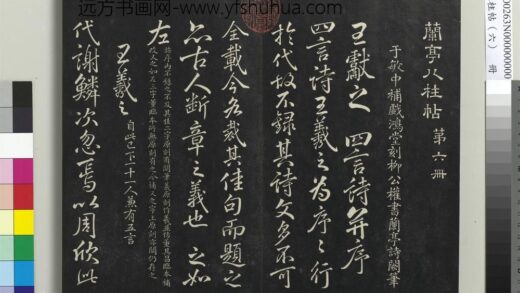 远方书画网-www.yfshuhua.com
蘭亭八柱帖 第六冊
于敏中補戲鴻堂刻柳公權書蘭亭詩闕筆
王獻之 四言詩并序
四言詩王羲之為序序行
於代故不錄其詩文多不可
全載今各裁其佳句而題之
亦古人斷章之義也 之如
左
王羲之 自此已下十一人兼有五言
代謝鱗次忽焉以周欣此
00263N00000000
柱帖（六） 冊